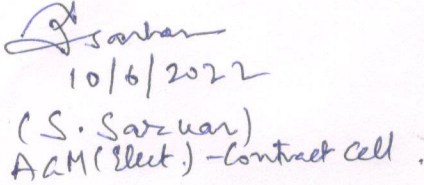 Ssarkar
10/6/2022
(S. Sarkar)
AGM (Elect.) - Contract Cell.